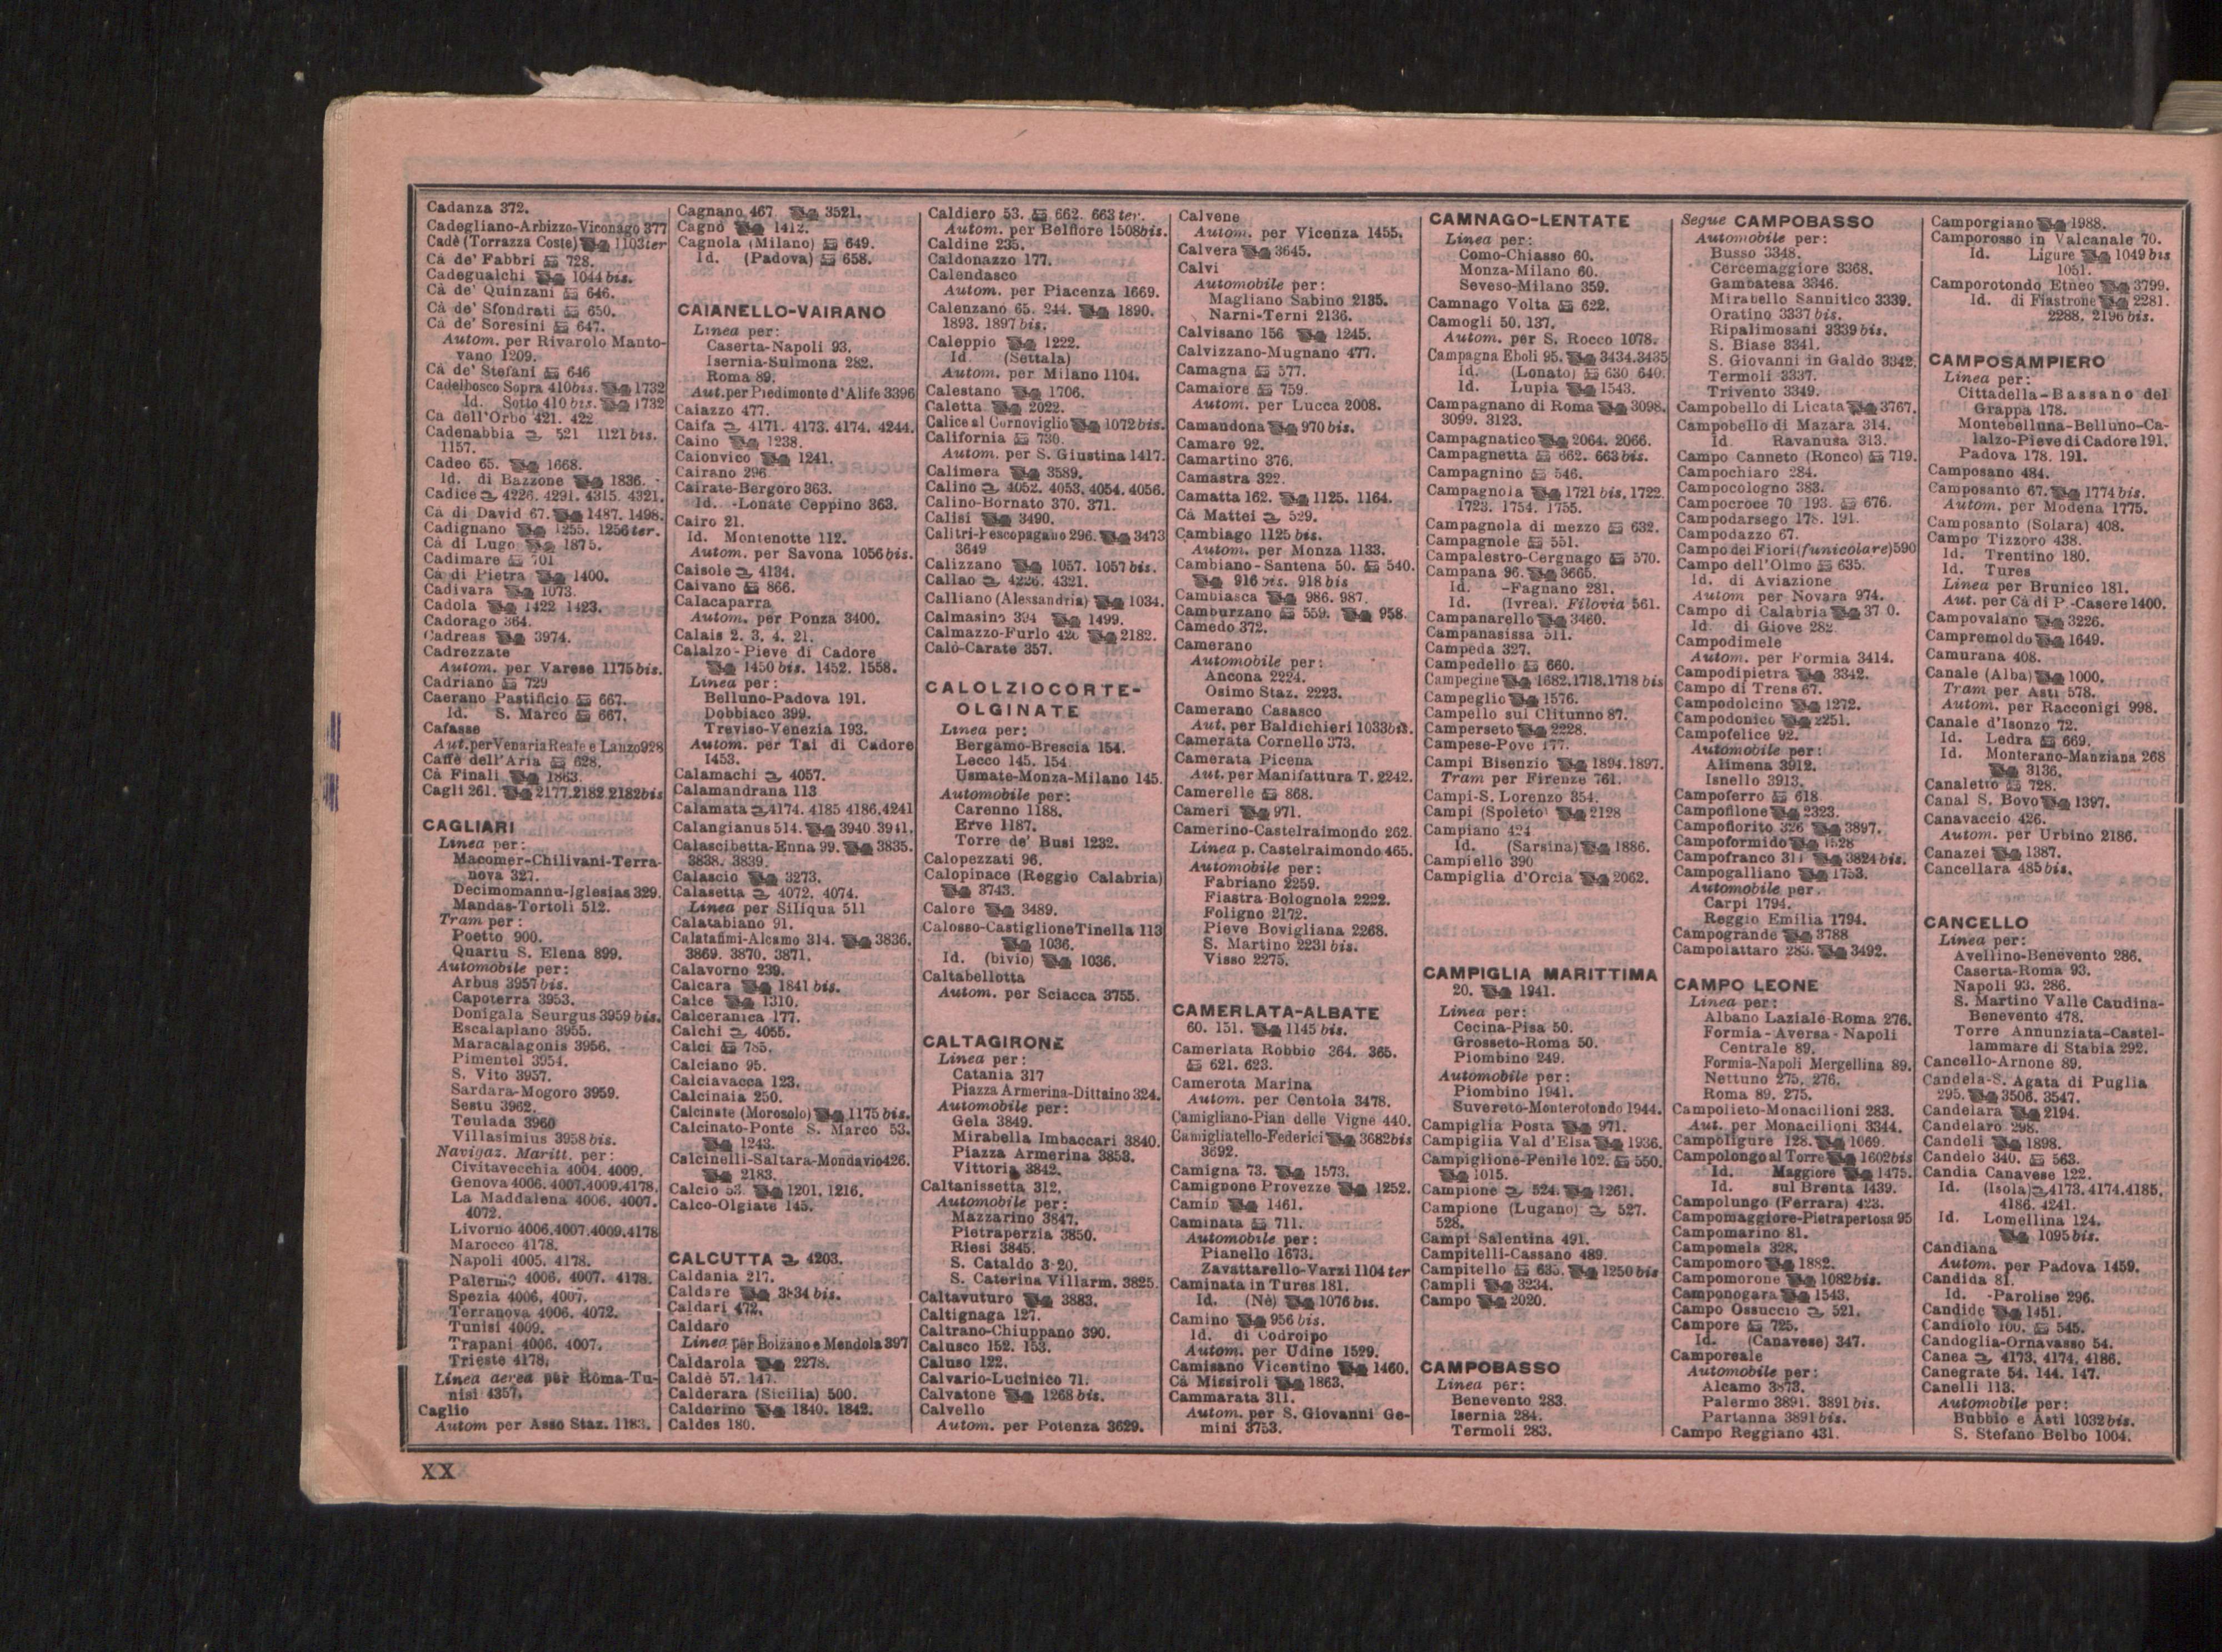 Cadanza 372.
Cadegliano-Arbizzo-Viconago 377
Cadè (Torrazza Coste) 1103ter
Cà de' Fabbri 728.
Cadegualchi 1044bis.
Cà de' Quinzani 646.
Cà de' Sfondrati 650.
Cà de' Soresini 647.
Autom. per Rivarolo Manto-
vano 1209.
Cà de' Stefani 646
Cadelbosco Sopra 410bis. 1732
Id. Sotto 410 bis. 1732
Ca dell'Orbo 421. 422
Cadenabbia 521 1121bis.
1157.
Cadeo 65. 1668.
Id. di Bazzone 1836.
Cadice 4226. 4291. 4315. 4321.
Cà di David 67. 1487. 1498.
Cadignano 1255. 1256ter.
Cà di Lugo 1875.
Cadimare 701
Cà di Pietra 1400.
Cadivara 1073.
Cadola 1422 1423.
Cadorago 364.
Cadreas 3974.
Cadrezzate
Autom. per Varese 1175bis.
Cadriano 729
Caerano Pastificio 667.
Id. S. Marco 667.
Cafasse
Aut.per Venaria Reale e Lanzo 928
Caffè dell'Aria 628.
Cà Finali 1863.
Cagli 261. 2177.2182 2182bis
CAGLIARI
Linea per:
Macomer-Chilivani-Terra-
nova 327.
Decimomannu-Iglesias 329.
Mandas-Tortolì 512.
Tram per:
Poetto 900.
Quartu S. Elena 899.
Automobile per:
Arbus 3957bis.
Capoterra 3953.
Donigala Seurgus 3959 bis.
Escalaplano 3955.
Maracalagonis 3956.
Pimentel 3954.
S. Vito 3957.
Sardara-Mogoro 3959.
Sestu 3962.
Teulada 3960
Villasimius 3958bis.
Navigaz. Maritt. per:
Civitavecchia 4004. 4009.
Genova 4006. 4007.4009.4178.
La Maddalena 4006. 4007.
4072.
Livorno 4006.4007.4009.4178
Marocco 4178.
Napoli 4005. 4178.
Palermo 4006. 4007. 4178.
Spezia 4006. 4007.
Terranova 4006. 4072.
Tunisi 4009.
Trapani 4006. 4007.
Trieste 4178.
Linea aerea per Roma-Tu-
nisi 4357.
Caglio
Autom per Asso Staz. 1183.
Cagnano 467 3521.
Cagno 1412.
Cagnola (Milano) 649.
Id. (Padova) 658.
CAIANELLO-VAIRANO
Linea per:
Caserta-Napoli 93.
Isernia-Sulmona 282.
Roma 89.
Aut.per Piedimonte d'Alife 3396
Caiazzo 477.
Caifa 4171. 4173. 4174. 4244.
Caino 1238.
Caionvico 1241.
Cairano 296
Cairate-Bergoro 363.
Id. -Lonate Ceppino 363.
Cairo 21.
Id. Montenotte 112.
Autom. per Savona 1056bis.
Caisole 4134.
Caivano 866.
Calacaparra
Autom. per Ponza 3400.
Calais 2. 3. 4. 21.
Calalzo-Pieve di Cadore
1450bis. 1452. 1558.
Linea per:
Belluno-Padova 191.
Dobbiaco 399.
Treviso-Venezia 193.
Autom. per Tai di Cadore
1453.
Calamachi 4057.
Calamandrana 113
Calamata 4174. 4185 4186.4241
Calangianus 514. 3940 3941.
Calascibetta-Enna 99. 3835.
3838. 3839.
Calascio 3273.
Calasetta 4072. 4074.
Linea per Siliqua 511
Calatabiano 91.
Calatafimi-Alcamo 314. 3836.
3869. 3870. 3871.
Calavorno 239.
Calcara 1841 bis.
Calce 1310.
Calceranica 177.
Calchi 4055.
Calci 785.
Calciano 95.
Calciavacca 123.
Calcinaia 250.
Calcinate (Morosolo) 1175 bis.
Calcinato-Ponte S. Marco 53.
1243.
Calcinelli-Saltara-Mondavio 426.
2183.
Calcio 53. 1201. 1216.
Calco-Olgiate 145.
CALCUTTA 4203.
Caldania 217.
Caldare 3834 bis.
Caldari 472.
Caldaro
Linea per Bolzano e Mendola 397
Caldarola 2278.
Caldè 57. 147.
Calderara (Sicilia) 500.
Calderino 1840. 1842.
Caldes 180.
Caldiero 53. 662. 663ter.
Autom. per Belfiore 1508bis.
Caldine 235.
Caldonazzo 177.
Calendasco
Autom. per Piacenza 1669.
Calenzano 65. 244. 1890.
1893. 1897bis.
Caleppio 1222.
Id. (Settala)
Autom. per Milano 1104.
Calestano 1706.
Caletta 2022.
Calice al Cornoviglio 1072bis.
California 730.
Autom. per S. Giustina 1417.
Calimera 3589.
Calino 4052. 4053. 4054. 4056.
Calino-Bornato 370. 371.
Calisi 3490.
Calitri-Pescopagano 296. 3473
3649
Calizzano 1057. 1057bis.
Callao 4226. 4321.
Calliano (Alessandria) 1034.
Calmasino 394 1499.
Calmazzo-Furlo 426 2182.
Calò-Carate 357.
CALOLZIOCORTE-
OLGINATE
Linea per:
Bergamo-Brescia 154.
Lecco 145. 154
Usmate-Monza-Milano 145.
Automobile per:
Carenno 1188.
Erve 1187.
Torre de' Busi 1232.
Calopezzati 96.
Calopinace (Reggio Calabria)
3743.
Calore 3489.
Calosso-Castiglione Tinella 113
1036.
Id. (bivio) 1036.
Caltabellotta
Autom. per Sciacca 3755.
CALTAGIRONE
Linea per:
Catania 317
Piazza Armerina-Dittaino 324.
Automobile per:
Gela 3849.
Mirabella Imbaccari 3840.
Piazza Armerina 3853.
Vittoria 3842.
Caltanissetta 312.
Automobile per:
Mazzarino 3847.
Pietraperzia 3850.
Riesi 3845.
S. Cataldo 3 20.
S. Caterina Villarm. 3825.
Caltavuturo 3883.
Caltignaga 127.
Caltrano-Chiuppano 390.
Calusco 152. 153.
Caluso 122.
Calvario-Lucinico 71.
Calvatone 1268bis.
Calvello
Autom. per Potenza 3629.
Calvene
Autom. per Vicenza 1455.
Calvera 3645.
Calvi
Automobile per:
Magliano Sabino 2135.
Narni-Terni 2136.
Calvisano 156 1245.
Calvizzano-Mugnano 477.
Camagna 577.
Camaiore 759.
Autom. per Lucca 2008.
Camandona 970bis.
Camaro 92.
Camartino 376.
Camastra 322.
Camatta 162. 1125. 1164.
Cà Mattei 529.
Cambiago 1125 bis.
Autom. per Monza 1133.
Cambiano-Santena 50. 540.
916 bis. 918bis
Cambiasca 986. 987.
Camburzano 559. 958
Camedo 372.
Camerano
Automobile per:
Ancona 2224.
Osimo Staz. 2223.
Camerano Casasco
Aut. per Baldichieri 1033bis.
Camerata Cornello 373.
Camerata Picena
Aut. per Manifattura T. 2242.
Camerelle 868.
Cameri 971.
Camerino-Castelraimondo 262.
Linea p. Castelraimondo 465.
Automobile per:
Fabriano 2259.
Fiastra-Bolognola 2222.
Foligno 2172.
Pieve Bovigliana 2268.
S. Martino 2231bis.
Visso 2275.
CAMERLATA-ALBATE
60. 151. 1145 bis.
Camerlata Robbio 364. 365.
621. 623.
Camerota Marina
Autom. per Centola 3478.
Camigliano-Pian delle Vigne 440.
Camigliatello-Federici 3682bis
3692.
Camigna 73. 1573.
Camignone Provezze 1252.
Camin 1461.
Caminata 711.
Automobile per:
Pianello 1673.
Zavattarello-Varzi 1104ter
Caminata in Tures 181.
Id. (Nè) 1076bis.
Camino 956bis.
Id. di Codroipo
Autom. per Udine 1529.
Camisano Vicentino 1460.
Cà Missiroli 1863.
Cammarata 311.
Autom. per S. Giovanni Ge-
mini 3753.
CAMNAGO-LENTATE
Linea per:
Como-Chiasso 60.
Monza-Milano 60.
Seveso-Milano 359.
Camnago Volta 622.
Camogli 50. 137.
Autom. per S. Rocco 1078.
Campagna Eboli 95. 3434.3435
Id. (Lonato) 630 640.
Id. Lupia 1543.
Campagnano di Roma 3098.
3099. 3123.
Campagnatico 2064. 2066.
Campagnetta 662. 663bis.
Campagnino 546.
Campagnola 1721 bis. 1722.
1723. 1754. 1755.
Campagnola di mezzo 632.
Campagnole 551.
Campalestro-Cergnago 570.
Campana 96. 3665.
Id. -Fagnano 281.
Id. (Ivrea). Filovia 561.
Campanarello 3460.
Campanasissa 511.
Campeda 327.
Campedello 660.
Campegine 1682.1718.1718 bis
Campeglio 1576.
Campello sul Clitunno 87.
Camperseto 2228.
Campese-Pove 177.
Campi Bisenzio 1894.1897.
Tram per Firenze 761.
Campi-S. Lorenzo 354.
Campi (Spoleto) 2128
Campiano 424
Id. (Sarsina) 1886.
Campiello 390
Campiglia d'Orcia 2062.
CAMPIGLIA MARITTIMA
20. 1941.
Linea per:
Cecina-Pisa 50.
Grosseto-Roma 50.
Piombino 249.
Automobile per:
Piombino 1941.
Suvereto-Monterotondo 1944.
Campiglia Posta 971.
Campiglia Val d'Elsa 1936.
Campiglione-Fenile 102. 550.
1015.
Campione 524. 1261.
Campione (Lugano) 527.
528.
Campi Salentina 491.
Campitelli-Cassano 489.
Campitello 635. 1250bis
Campli 3234.
Campo 2020.
CAMPOBASSO
Linea per:
Benevento 283.
Isernia 284.
Termoli 283.
Segue CAMPOBASSO
Automobile per:
Busso 3348.
Cercemaggiore 3368.
Gambatesa 3346.
Mirabello Sannitico 3339.
Oratino 3337bis.
Ripalimosani 3339bis.
S. Biase 3341.
S. Giovanni in Galdo 3342.
Termoli 3337.
Trivento 3349.
Campobello di Licata 3767.
Campobello di Mazara 314.
Id. Ravanusa 313.
Campo Canneto (Ronco) 719.
Campochiaro 284.
Campocologno 383.
Campocroce 70 193. 676.
Campodarsego 178. 191.
Campodazzo 67.
Campo dei Fiori (funicolare) 590
Campo dell'Olmo 635.
Id. di Aviazione
Autom per Novara 974.
Campo di Calabria 37 0.
Id. di Giove 282
Campodimele
Autom. per Formia 3414.
Campodipietra 3342.
Campo di Trens 67.
Campodolcino 1272.
Campodonico 2251.
Campofelice 92.
Automobile per:
Alimena 3912.
Isnello 3913.
Campoferro 618.
Campofilone 2323.
Campofiorito 326 3897.
Campoformido 1528
Campofranco 311 3824bis.
Campogalliano 1753.
Automobile per.
Carpi 1794.
Reggio Emilia 1794.
Campogrande 3788
Campolattaro 283. 3492.
CAMPO LEONE
Linea per:
Albano Laziale-Roma 276.
Formia-Aversa-Napoli
Centrale 89.
Formia-Napoli Mergellina 89.
Nettuno 275. 276.
Roma 89. 275.
Campolieto-Monacilioni 283.
Aut. per Monacilioni 3344.
Campoligure 128. 1069.
Campolongo al Torre 1602bis
Id. Maggiore 1475.
Id. sul Brenta 1439.
Campolungo (Ferrara) 423.
Campomaggiore-Pietrapertosa 95
Campomarino 81.
Campomela 328.
Campomoro 1882.
Campomorone 1082bis.
Camponogara 1543.
Campo Ossuccio 521.
Campore 725.
Id. (Canavese) 347.
Camporeale
Automobile per:
Alcamo 3873.
Palermo 3891. 3891bis.
Partanna 3891bis.
Campo Reggiano 431.
Camporgiano 1988.
Camporosso in Valcanale 70.
Id. Ligure 1049 bis
1051.
Camporotondo Etneo 3799.
Id. di Fiastrone 2281.
2288. 2196bis.
CAMPOSAMPIERO
Linea per:
Cittadella-Bassano del
Grappa 178.
Montebelluna-Belluno-Ca-
lalzo-Pieve di Cadore 191.
Padova 178. 191.
Camposano 484.
Camposanto 67. 1774bis.
Autom. per Modena 1775.
Camposanto (Solara) 408.
Campo Tizzoro 438.
Id. Trentino 180.
Id. Tures
Linea per Brunico 181.
Aut. per Cà di P.-Casere 1400.
Campovalano 3226.
Campremoldo 1649.
Camurana 408.
Canale (Alba) 1000.
Tram per Asti 578.
Autom. per Racconigi 998.
Canale d'Isonzo 72.
Id. Ledra 669.
Id. Monterano-Manziana 268
3136.
Canaletto 728.
Canal S. Bovo 1397.
Canavaccio 426.
Autom. per Urbino 2186.
Canazei 1387.
Cancellara 485bis.
CANCELLO
Linea per:
Avellino-Benevento 286.
Caserta-Roma 93.
Napoli 93. 286.
S. Martino Valle Caudina-
Benevento 478.
Torre Annunziata-Castel-
lammare di Stabia 292.
Cancello-Arnone 89.
Candela-S. Agata di Puglia
295. 3506. 3547.
Candelara 2194.
Candelaro 298.
Candeli 1898.
Candelo 340. 563.
Candia Canavese 122.
Id. (Isola) 4173.4174.4185.
4186. 4241.
Id. Lomellina 124.
1095bis.
Candiana
Autom. per Padova 1459.
Candida 81.
Id. -Parolise 296.
Candide 1451.
Candiolo 100. 545.
Candoglia-Ornavasso 54.
Canea 4173. 4174. 4186.
Canegrate 54. 144. 147.
Canelli 113.
Automobile per:
Bubbio e Asti 1032bis.
S. Stefano Belbo 1004.
XX